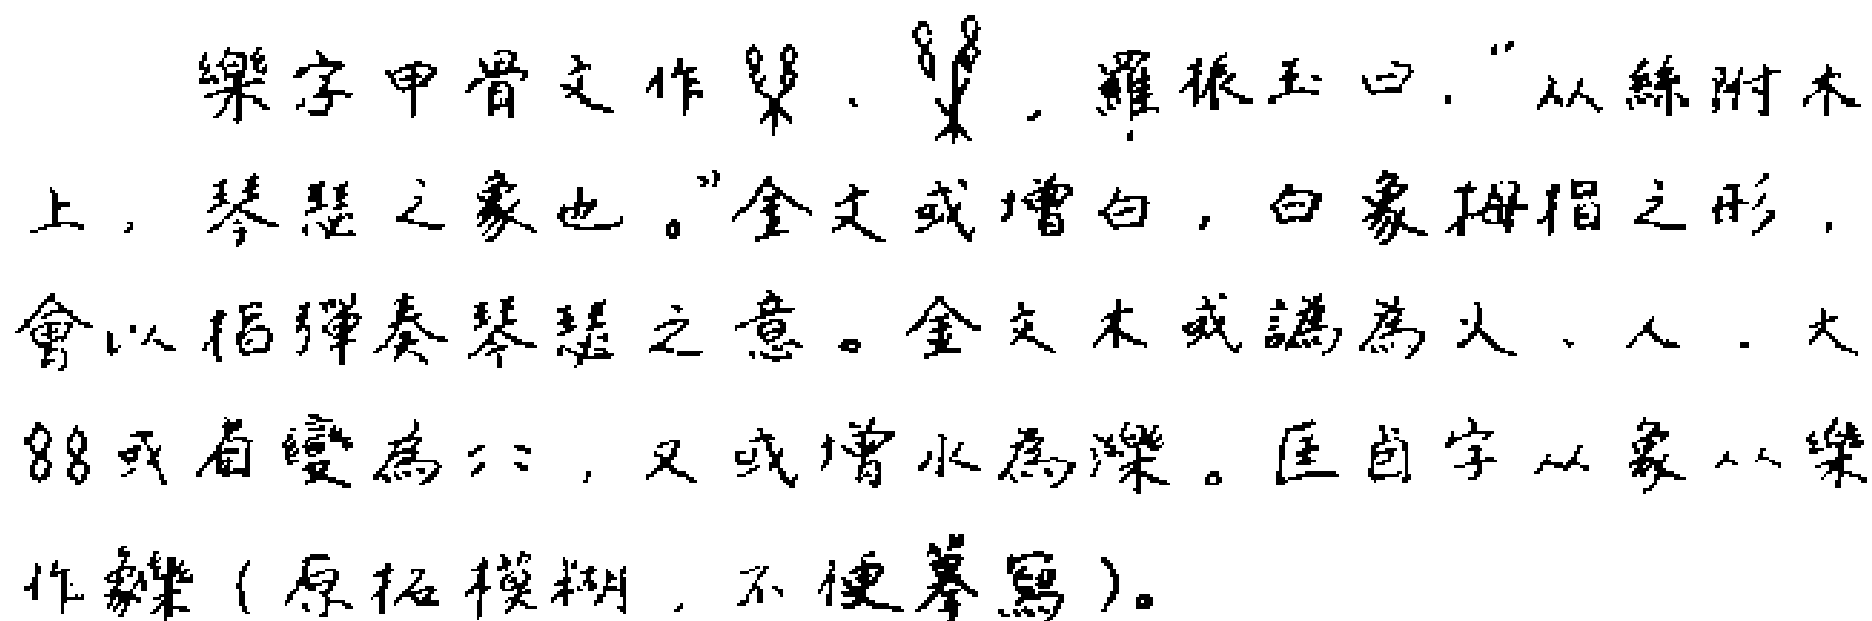 樂字甲骨文作、,羅振玉曰,“从絲附木
上,琴瑟之象也。”金文或增白,白象拇指之形,
會以指彈奏琴瑟之意。金文木或譌為火、人、大
或省變為,又或增水為濼。匡卣字从象从樂
作(原拓模糊,不便摹寫)。